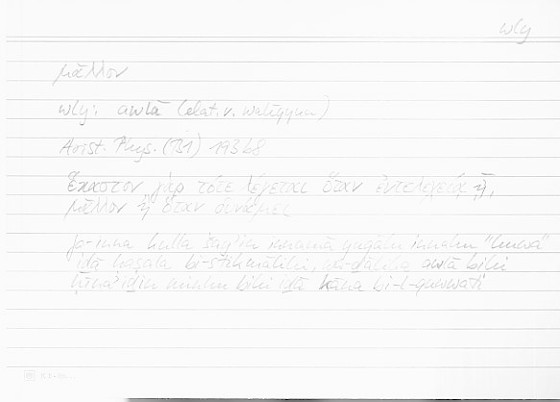 wly
μᾶλλον
wly: awlā (elat. v. walīyun)
Arist. Phys. (B1) 193b8
ἕκαστον γὰρ τότε λέγεται ὅταν ἐντελεχείᾳ ᾖ,
μᾶλλον ἢ ὅταν δυνάμει
fa-inna kulla šayʾin innamā yuqālu innahu "huwa"
iḏā ḥaṣala bi-stikmālihi, wa-ḏālika awlā bihi
ḥīnaʾiḏin minhu bihi iḏā kāna bi-l-quwwati